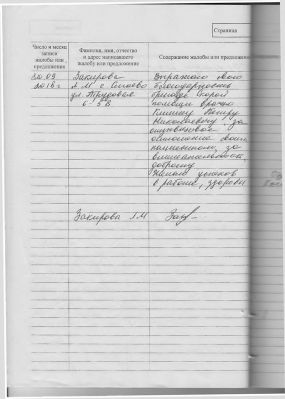 Страница
Число и месяц
записи
жалобы или
предложения
Фамилия, имя, отчество
и адрес написавшего
жалобу или предложение
Содержание жалобы или предложения
20.09
2016 г
Закирова
Л М с
ул. Трудовая
6-3В
Выражаю свою
благодарность
бригаде скорой
помощи врачу
Николаевичу за
отношение
пациентам, за
доброту
Желаю успехов
в работе, здоровья
Закирова ЛМ